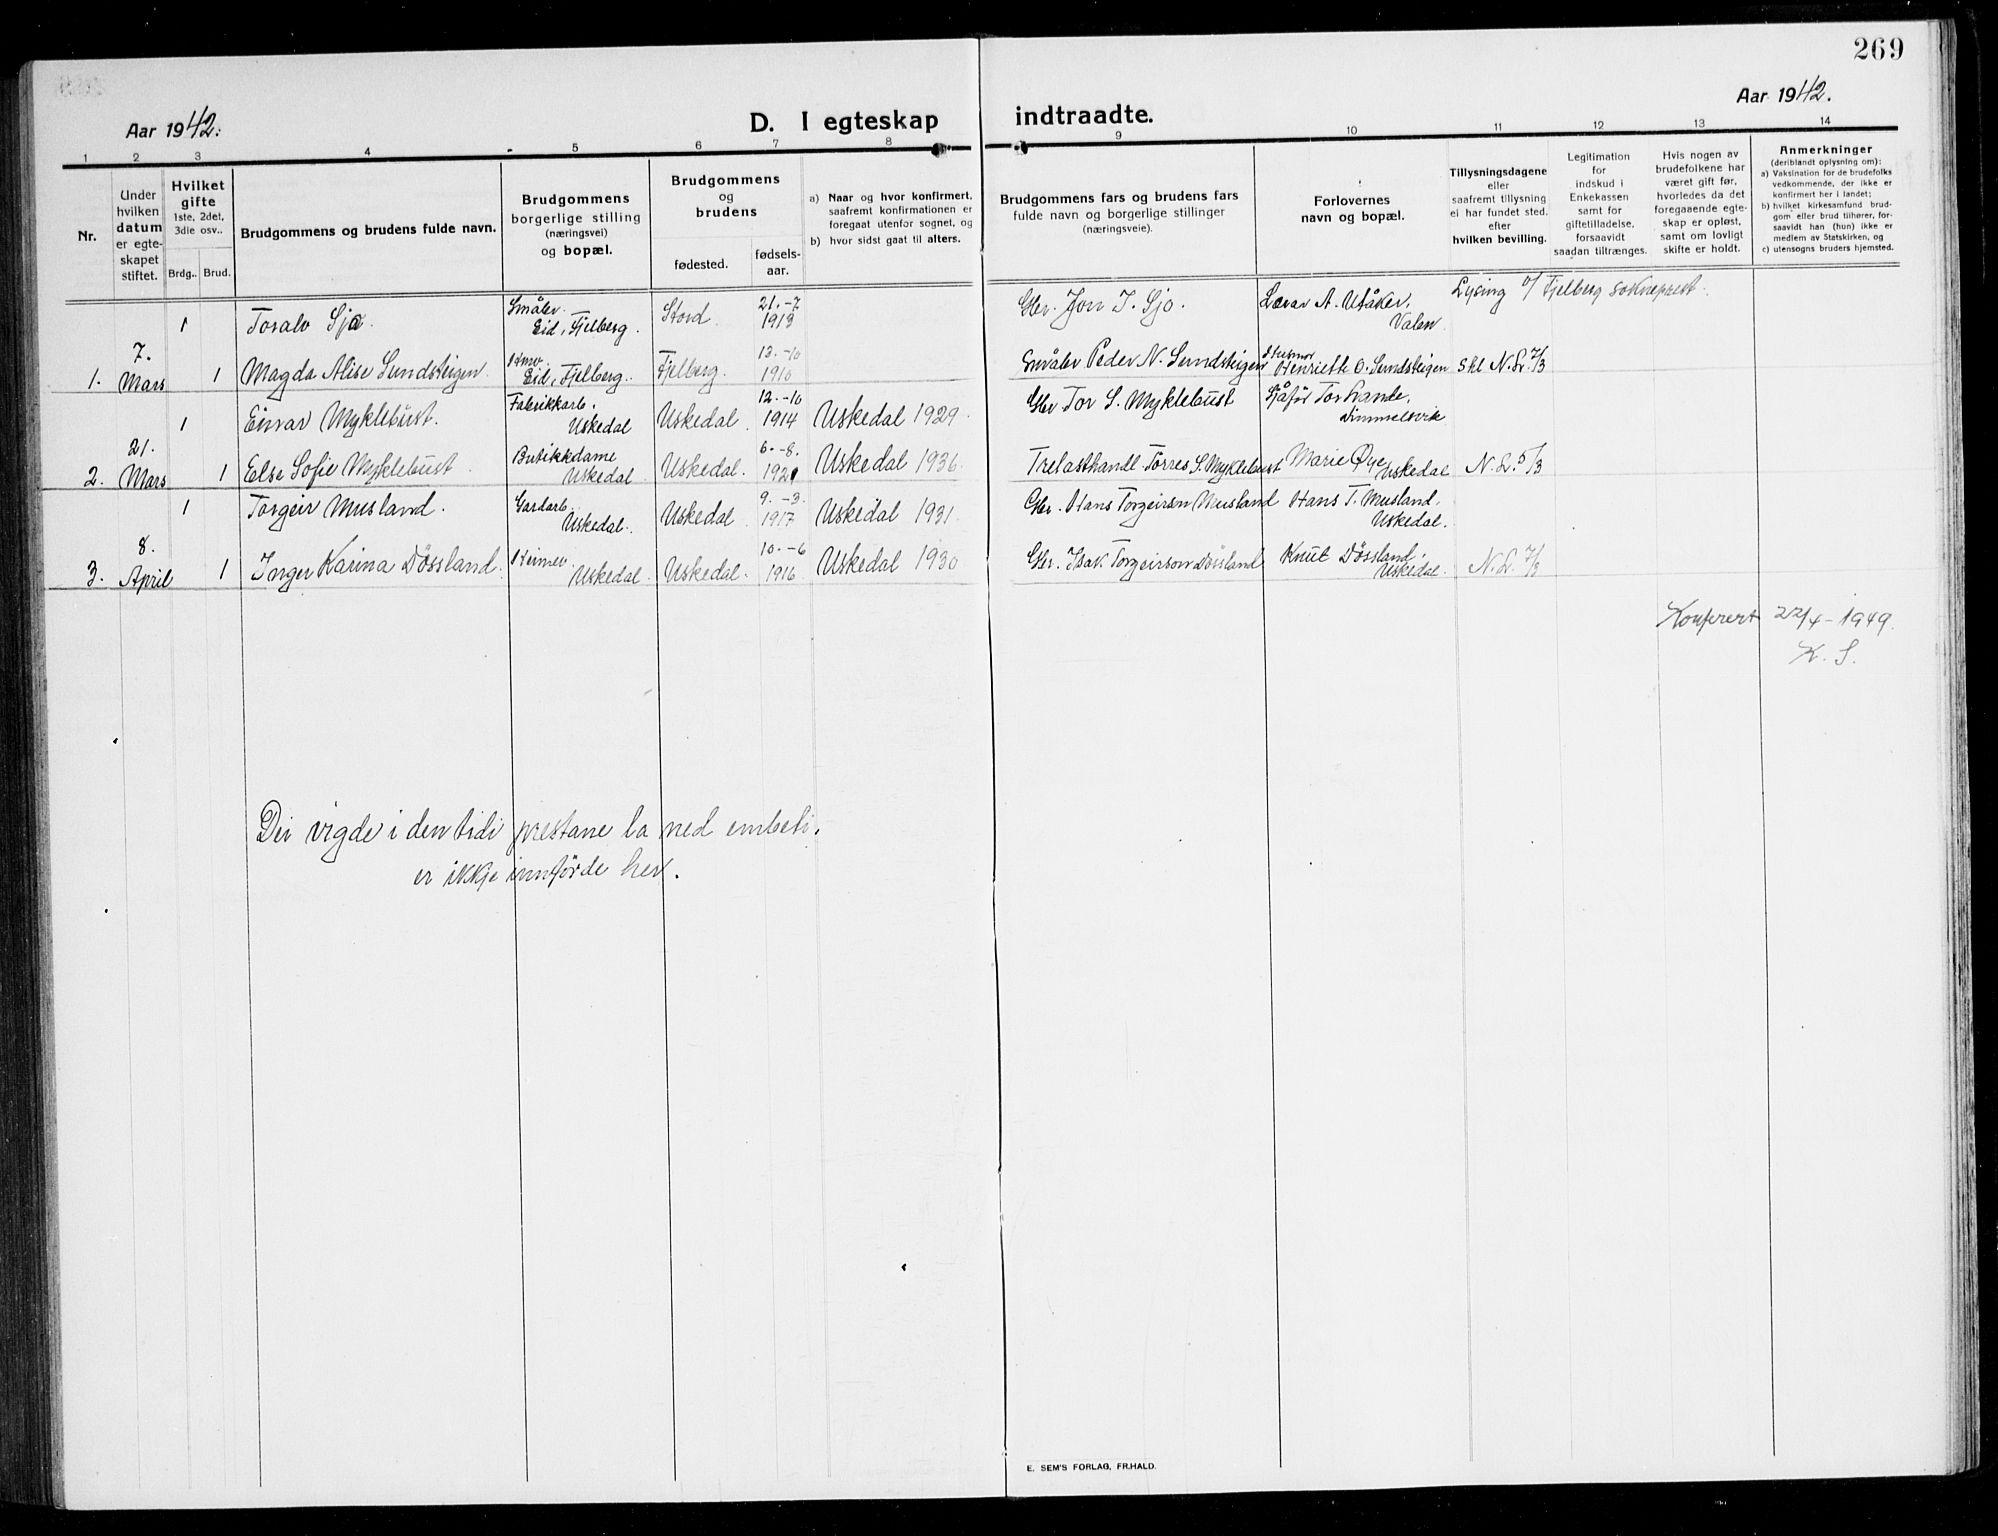 269
Aar 1942.
D. I egteskap indtraadte.
Aar 1942.
1 2 3 4 5 6 7 8 9 10 11 12 13 14
Nr.
Under hvilken datum er egteskapet stiftet.
Hvilket gifte 1ste, 2det, 3die osv..
Brdg.. Brud.
Brudgommens og brudens fulde navn.
Brudgommens borgerlige stilling (næringsvei) og bopæl.
Brudgommens og brudens
fødested.
fødsels-aar.
a) Naar og hvor konfirmert, saafremt konfirmationen er foregaat utenfor sognet, og
b) hvor sidst gaat til alters.
Brudgommens fars og brudens fars fulde navn og borgerlige stillinger (næringsveie).
Forlovernes navn og bopæl.
Tillysningsdagene eller saafremt tillysning ei har fundet sted. efter hvilken bevilling.
Legitimation for indskud i Enkekassen samt for giftetilladelse, forsaavidt saadan tiltrænges.
Hvis nogen av brudefolkene har været gift før, hvorledes da det foregaaende egteskap er opløst, samt om lovligt skifte er holdt.
Anmerkninger
(deriblandt oplysning om):
a) Vaksination for de brudefolks vedkommende, der ikke er konfirmert her i landet;
b) hvilket kirkesamfund brudgom eller brud tilhører, forsaavidt han (hun) ikke er medlem av Statskirken, og
c) utensogns bruders hjemsted.
1 Toralv Sjo. Småbr. Eid, Fjelberg. Stord 21.-7 1913 Gbr. Jon T. Sjo. Lærar A. Utåker, Valen Lysing v/ Fjelberg sokneprest.
1. 7. Mars 1 Magda Alise Sundsteigen. Eid, Fjelberg. Fjelberg. 13.-10 1910 Småbr Peder N. Sundsteigen Husmor Henriette O. Sundsteigen skl N.L. 7/3
1 Einar Myklebust. Fabrikkarb. Uskedal Uskedal. 12.-10 1914 Uskedal 1929. Gbr Tor S. Myklebust Sjåfør Tor Lande, Dimmelsvik
2. 21. Mars 1 Else Sofie Myklebust. Butikkdame Uskedal Uskedal. 6.-8. 1921 Uskedal 1936. Trelasthandl. Torres S. Myklebust Marie Øye Uskedal N.L. 5/3
1 Torgeir Musland. Gardarb. Uskedal. Uskedal 9.-3. 1917 Uskedal 1931. Gbr. Hans Torgeirson Musland Hans T. Musland, Uskedal.
3. 8. April 1 Inger Karina Døssland. Heimev. Uskedal. Uskedal. 10.-6 1916 Uskedal 1930 Gbr. Isak Torgeirson Døssland Knut Døssland. Uskedal. N.L. 7/3
Konferert 22/4-1949.
K. S.
Dei vigde i den tidi prestane la ned embeti,
er ikkje innførde her.
E. SEM'S FORLAG, FR.HALD.